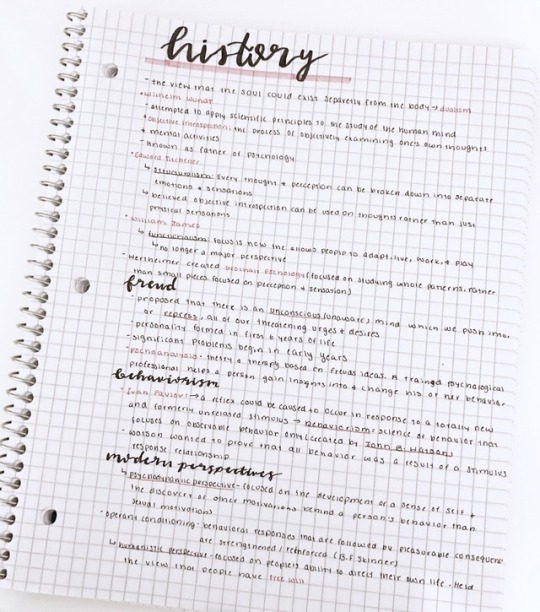 history
- the view that the soul could exist separetly from the body → dualism
- wilhelm wundt
- attempted to apply scientific principles to the study of the human mind
- objective introspection: the process of objectively examining one's own thoughts
+ mental activities
- known as father of psychology
- Edward Titchener
↳ structuralism: Every thought + perception can be broken down into separate
emotions + sensations
↳ believed objective introspection can be used on thoughts rather than just
physical sensations
- William James
↳ functionalism: focus is how the allows people to adapt, live, work, + play
↳ no longer a major perspective
- Wertheimer created psychology (focused on studying whole patterns, rather
than small pieces, focused on perception + sensation)
freud
- proposed that there is an unconscious (unaware) mind which we push into,
or repress, all of our threatening urges + desires
- personality formed in first 6 years of life
- significant problems begin in early years
- psychoanalysis - theory + therapy based on freuds ideas. A trained psychological
professional helps a person gain insights into + change his or her behavior
behaviorism
- Ivan Pavlov: → a reflex could be caused to occur in response to a totally new
and formerly unrelated stimulus → behaviorism: science of behavior that
focuses on observable behavior only (created by John B. Watson)
- Watson wanted to prove that all behavior was a result of a stimulus
response relationship
modern perspectives
↳ psychodynamic perspective - focused on the development of a sense of self +
the discovery of other motivations behind a person's behavior than
sexual motivations
- operant conditioning - behavioral responses that are followed by pleasurable consequence
are strengthened / reinforced (B.F. Skinner)
↳ humanistic perspective - focused on people's ability to direct their own life - held
the view that people have free will